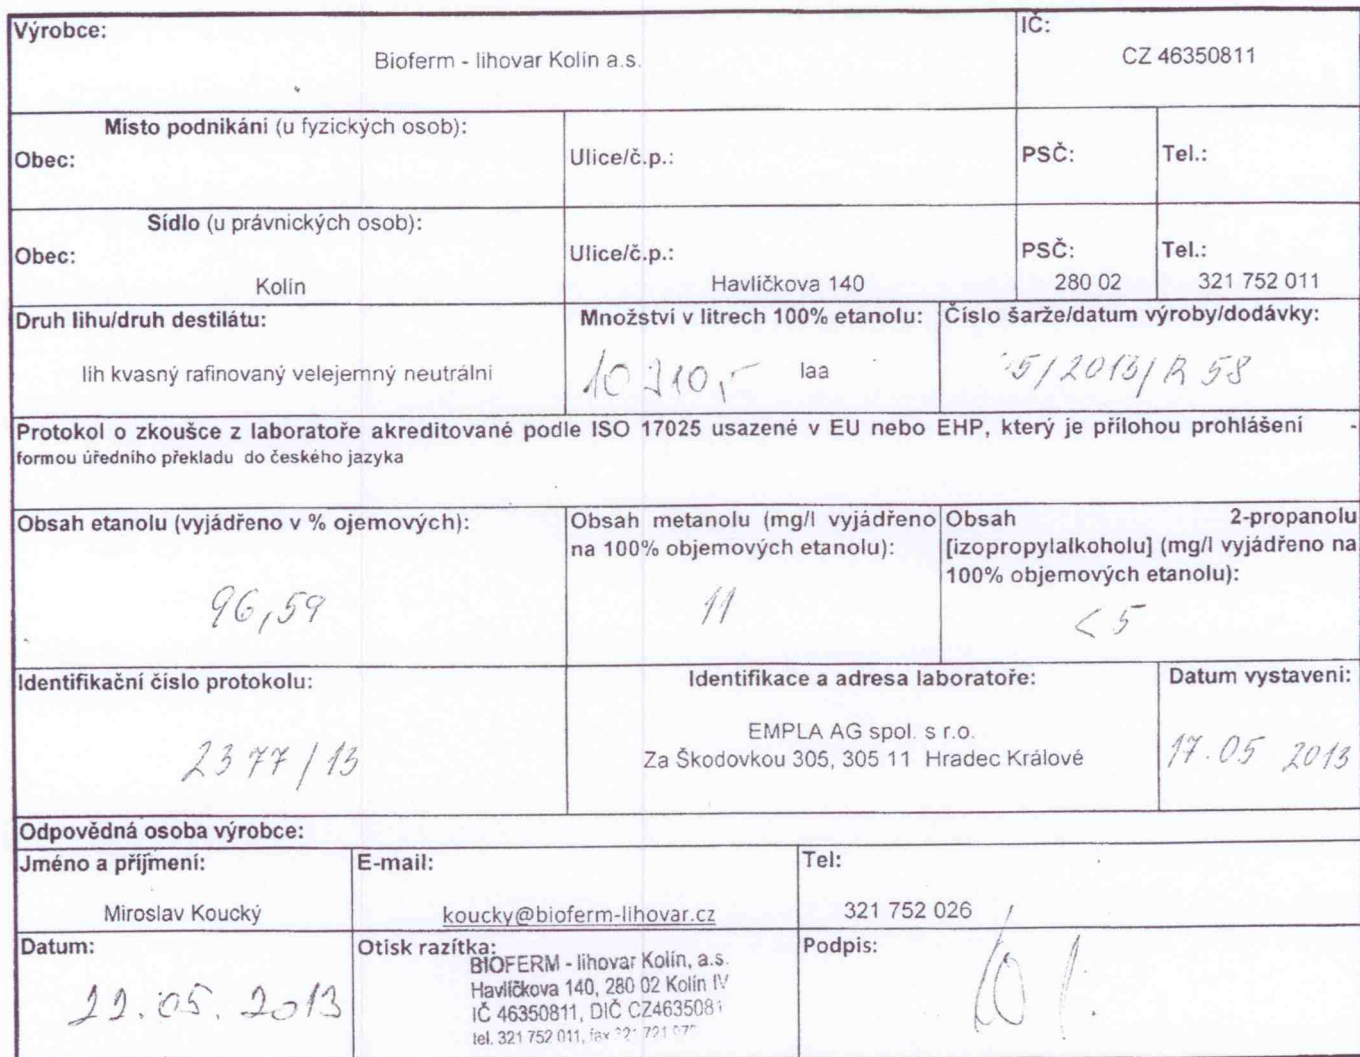 Výrobce:
Bioferm - lihovar Kolín a.s.
IČ:
CZ 46350811
Místo podnikání (u fyzických osob):
Obec:
Ulice/č.p.:
PSČ:
Tel.:
Sídlo (u právnických osob):
Obec:
Kolín
Ulice/č.p.:
Havlíčkova 140
PSČ:
280 02
Tel.:
321 752 011
Druh lihu/druh destilátu:
líh kvasný rafinovaný velejemný neutrální
Množství v litrech 100% etanolu:
laa
Číslo šarže/datum výroby/dodávky:
5/2013/R 58
Protokol o zkoušce z laboratoře akreditované podle ISO 17025 usazené v EU nebo EHP, který je přílohou prohlášení -
formou úředního překladu do českého jazyka
Obsah etanolu (vyjádřeno v % ojemových):
96,59
Obsah metanolu (mg/l vyjádřeno
na 100% objemových etanolu):
11
Obsah 2-propanolu
[izopropylalkoholu] (mg/l vyjádřeno na
100% objemových etanolu):
< 5
Identifikační číslo protokolu:
2377/13
Identifikace a adresa laboratoře:
EMPLA AG spol. s r.o.
Za Škodovkou 305, 305 11 Hradec Králové
Datum vystavení:
17.05 2013
Odpovědná osoba výrobce:
Jméno a příjmení:
Miroslav Koucký
E-mail:
koucky@bioferm-lihovar.cz
Tel:
321 752 026
Datum:
22.05.2013
Otisk razítka:
BIOFERM - lihovar Kolín, a.s.
Havlíčkova 140, 280 02 Kolín IV
IČ 46350811, DIČ CZ4635081
tel. 321 752 011, fax
Podpis: